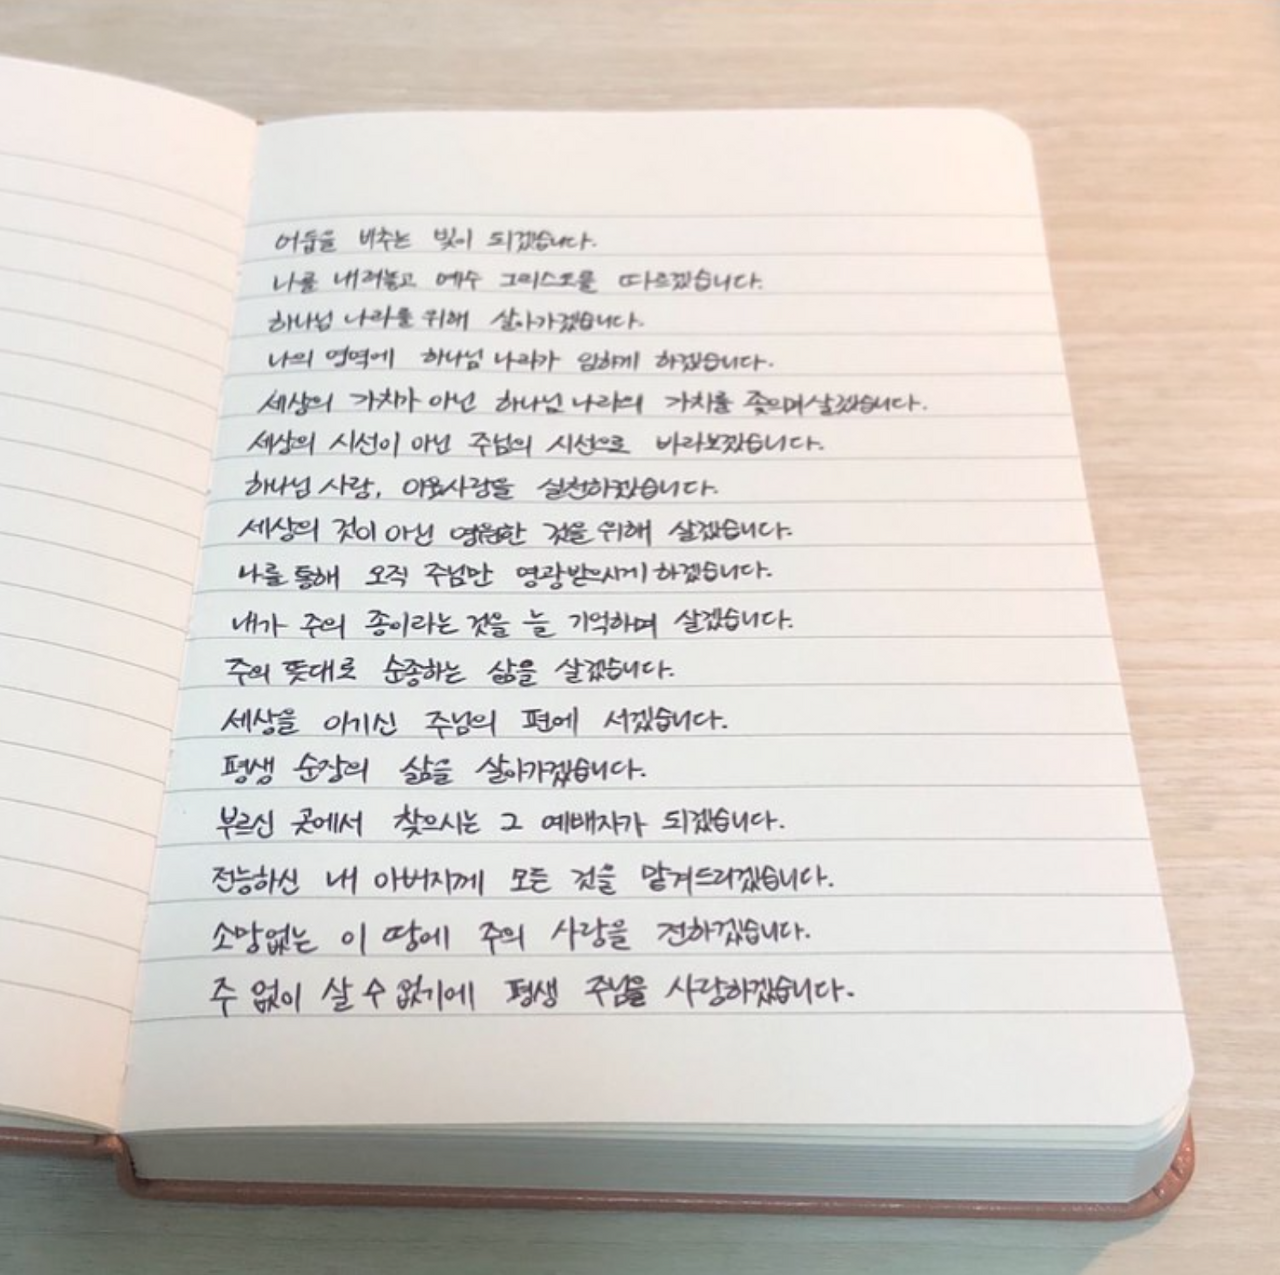 어둠을 비추는 빛이 되겠습니다.
나를 내려놓고 예수 그리스도를 따르겠습니다.
하나님 나라를 위해 살아가겠습니다.
나의 영역에 하나님 나라가 임하게 하겠습니다.
세상의 가치가 아닌 하나님 나라의 가치를 좇으며살겠습니다.
세상의 시선이 아닌 주님의 시선으로 바라보겠습니다.
하나님 사랑, 이웃사랑을 실천하겠습니다.
세상의 것이 아닌 영원한 것을 위해 살겠습니다.
나를 통해 오직 주님만 영광받으시게 하겠습니다.
내가 주의 종이라는 것을 늘 기억하며 살겠습니다.
주의 뜻대로 순종하는 삶을 살겠습니다.
세상을 이기신 주님의 편에 서겠습니다.
평생 순장의 삶을 살아가겠습니다.
부르신 곳에서 찾으시는 그 예배자가 되겠습니다.
전능하신 내 아버지께 모든 것을 맡겨드리겠습니다.
소망없는 이 땅에 주의 사랑을 전하겠습니다.
주 없이 살 수 없기에 평생 주님을 사랑하겠습니다.